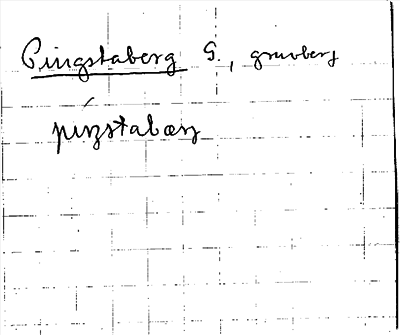 Pingstaberg G., gruvberg
pıŋstabærj